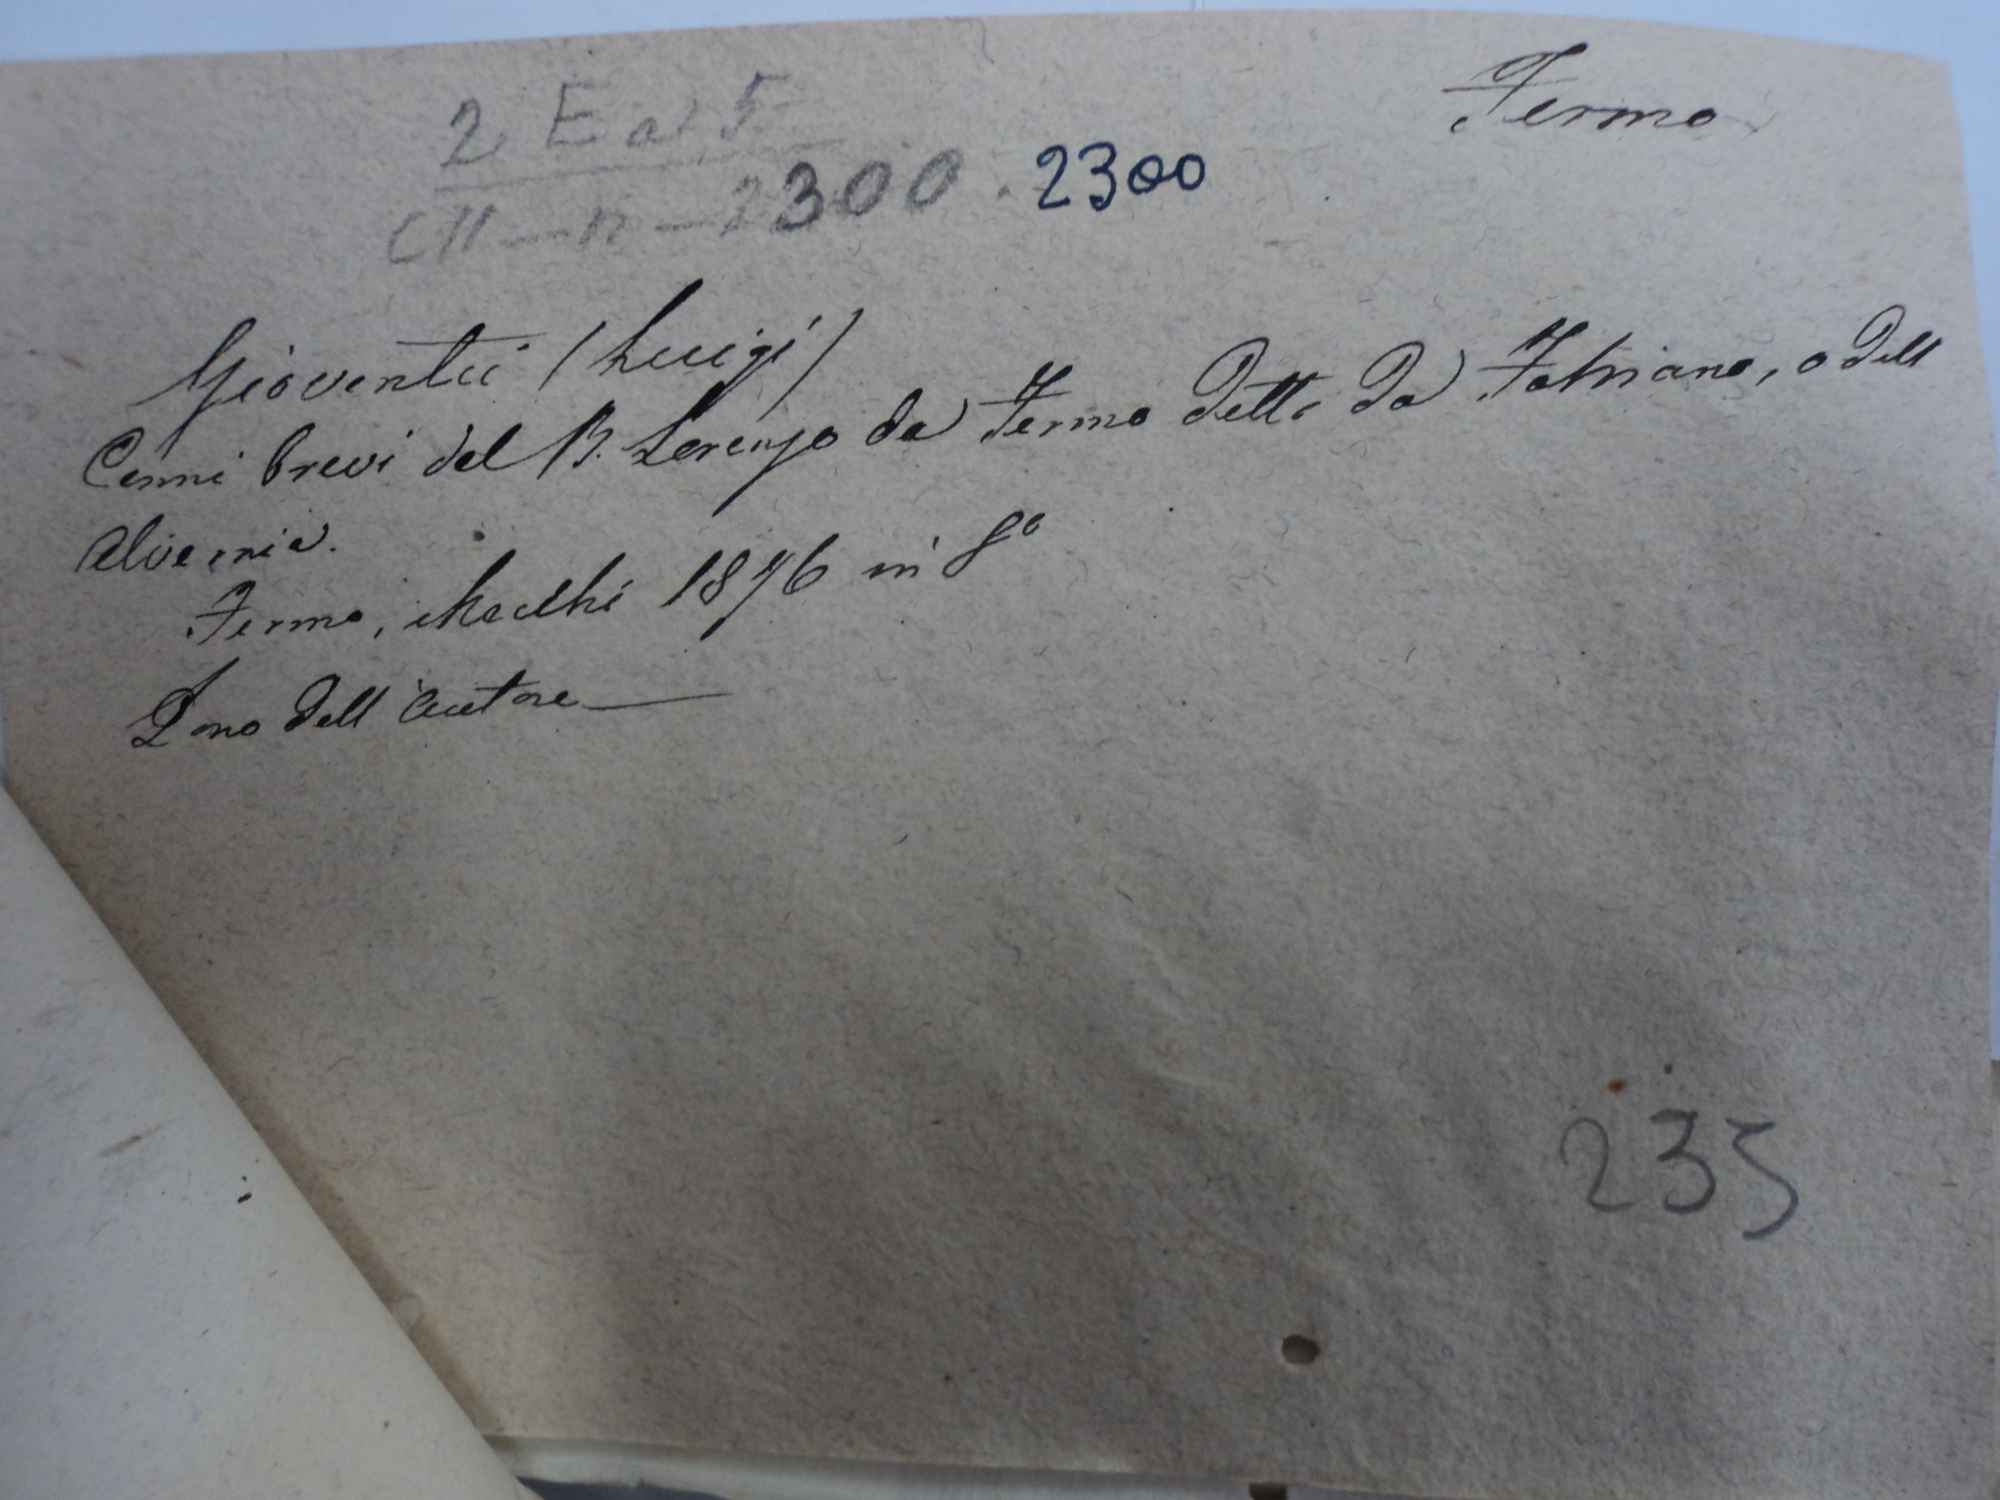 Fermo
2 E a 5
CM - n - 2300 . 2300
Gioventù (Luigi)
Cenni brevi del B. Lorenzo da Fermo detto da Fabriano, o dell
Alvernia.
Fermo, Macchi 1876 in 8º
Dono dell'autore
235